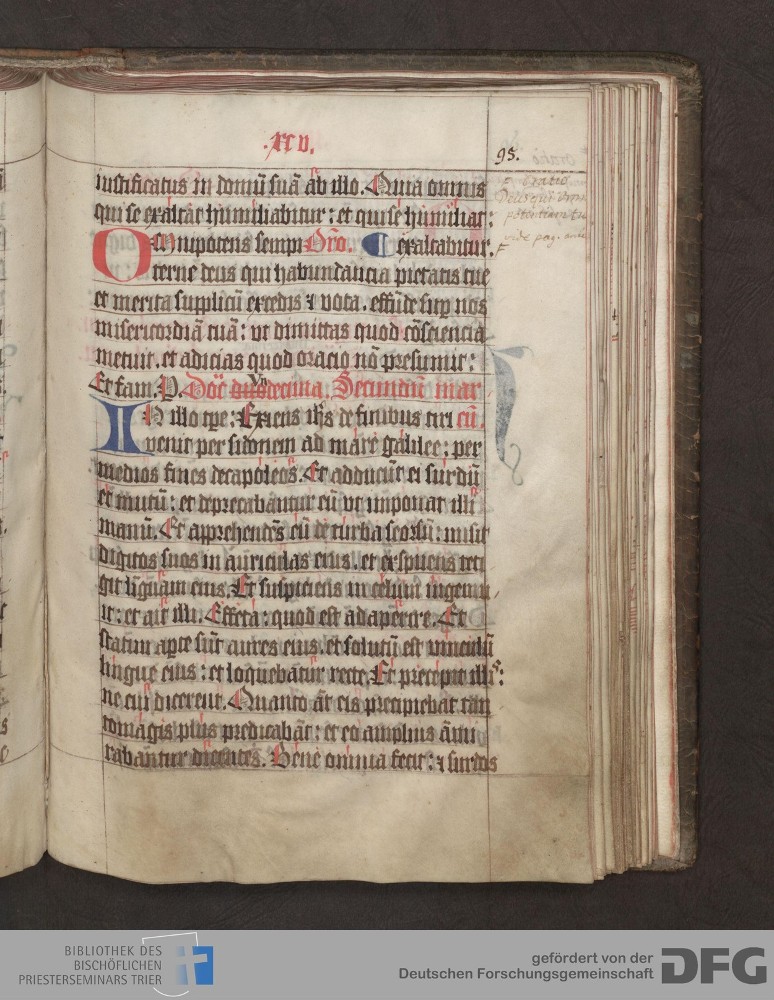 .xcv.
95.
iustificatus in domū suā ab illo. Quia omnis
qui se exaltat humiliabitur: et qui se humiliat:
OMnipotens sempi Oro. exaltabitur.
terne deus qui habundancia pietatis tue
et merita supplicū excedis ⁊ vota. effūde sup nos
misericordiā tuā: vt dimittas quod cōsciencia
metuit. et adicias quod oracio nō presumit:
Et fam. P. Secundum mar
IN illo tpe: Exiens ihs de finibus tiri cū.
venit per sidonem ad mare galilee: per
medios fines decapoleos. Et adducūt ei surdū
et mutū: et deprecabantur eū vt imponat illi
manū. Et apprehendēs eū de turba seorsū: misit
digitos suos in auriculas eius. et exspuens teti
git linguam eius. Et suspiciens in celum ingemu
it: et ait illi. Effeta: quod est adaperire. Et
statim apte sūt aures eius. et solutū est vinculū
lingue eius: et loquebatur recte. Et precepit illis:
ne cui dicerent. Quanto āt eis precipiebat tan
tomagis plus predicabāt: et eo amplius ami
rabantur dicentes. Bene omnia fecit: ⁊ surdos
oratio
Deus qui omni
potentiam tu
vide pag.
BIBLIOTHEK DES
BISCHÖFLICHEN
PRIESTERSEMINARS TRIER
gefördert von der
Deutschen Forschungsgemeinschaft DFG